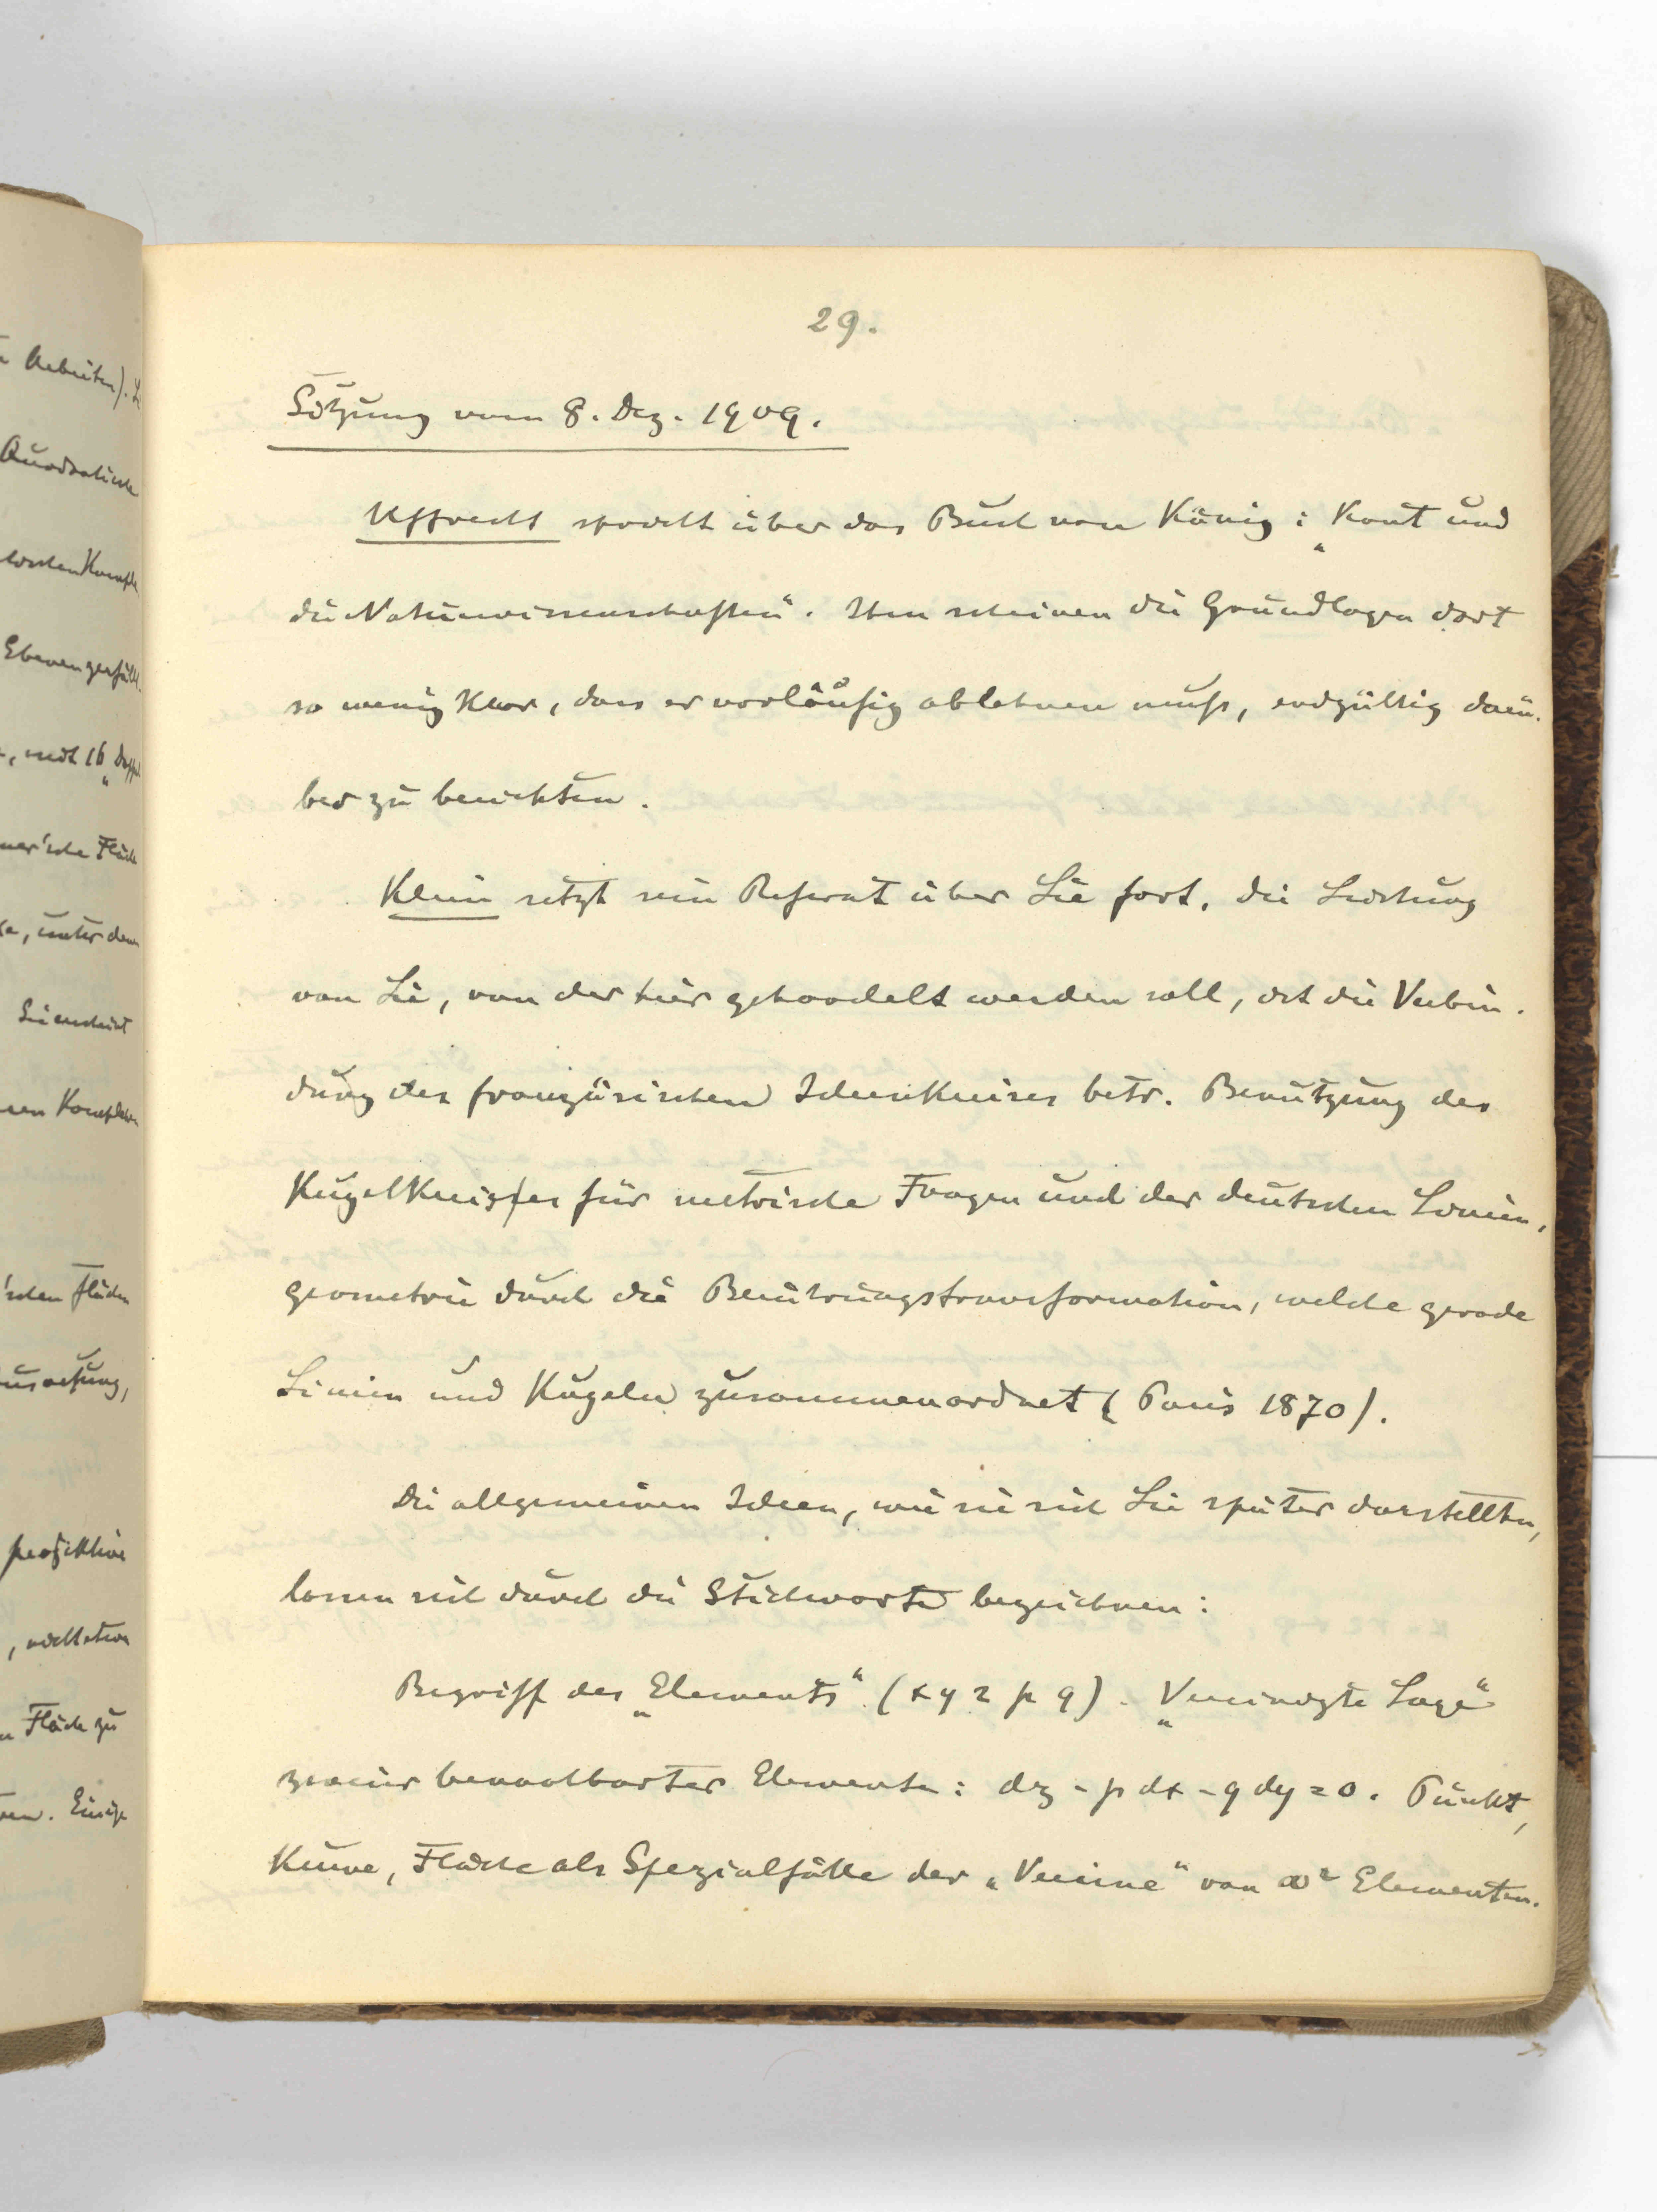 29.
Sitzung vom 8. Dez. 1909.
spricht über das Buch von König: „Kant und
die Naturwissenschaften“. Ihm scheinen die Grundlagen dort
so wenig klar, dass er vorläufig ablehnen muss, endgültig darü-
ber zu berichten.
Klein setzt sein Referat über Lie fort. Die Leistung
von Lie, von der hier gehandelt werden soll, ist die Verbin-
dung des französischen Ideenkreises betr. Benutzung des
Kugelkreises für metrische Fragen und der deutschen Linien-
geometrie durch die Berührungstransformation, welche gerade
Linien und Kugeln zusammenordnet (Paris 1870).
Die allgemeinen Ideen, wie sie sich Lie später darstellten,
lassen sich durch die Stichworte bezeichnen:
Begriff des „Elements“ (x y z p q). „Vereinigte Lage“
zweier benachbarter Elemente: dz - p dx - q dy = 0. Punkt,
Kurve, Fläche als Spezialfälle der „Vereine“ von ∞² Elementen.